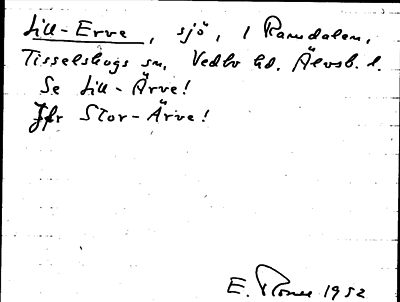 Lill-Erve, sjö, i Ramdalen,
Tisselskogs sn, Vedbo hd, Älvsb. l.
Se Lill-Ärve!
Jfr Stor-Ärve!
E. 1952